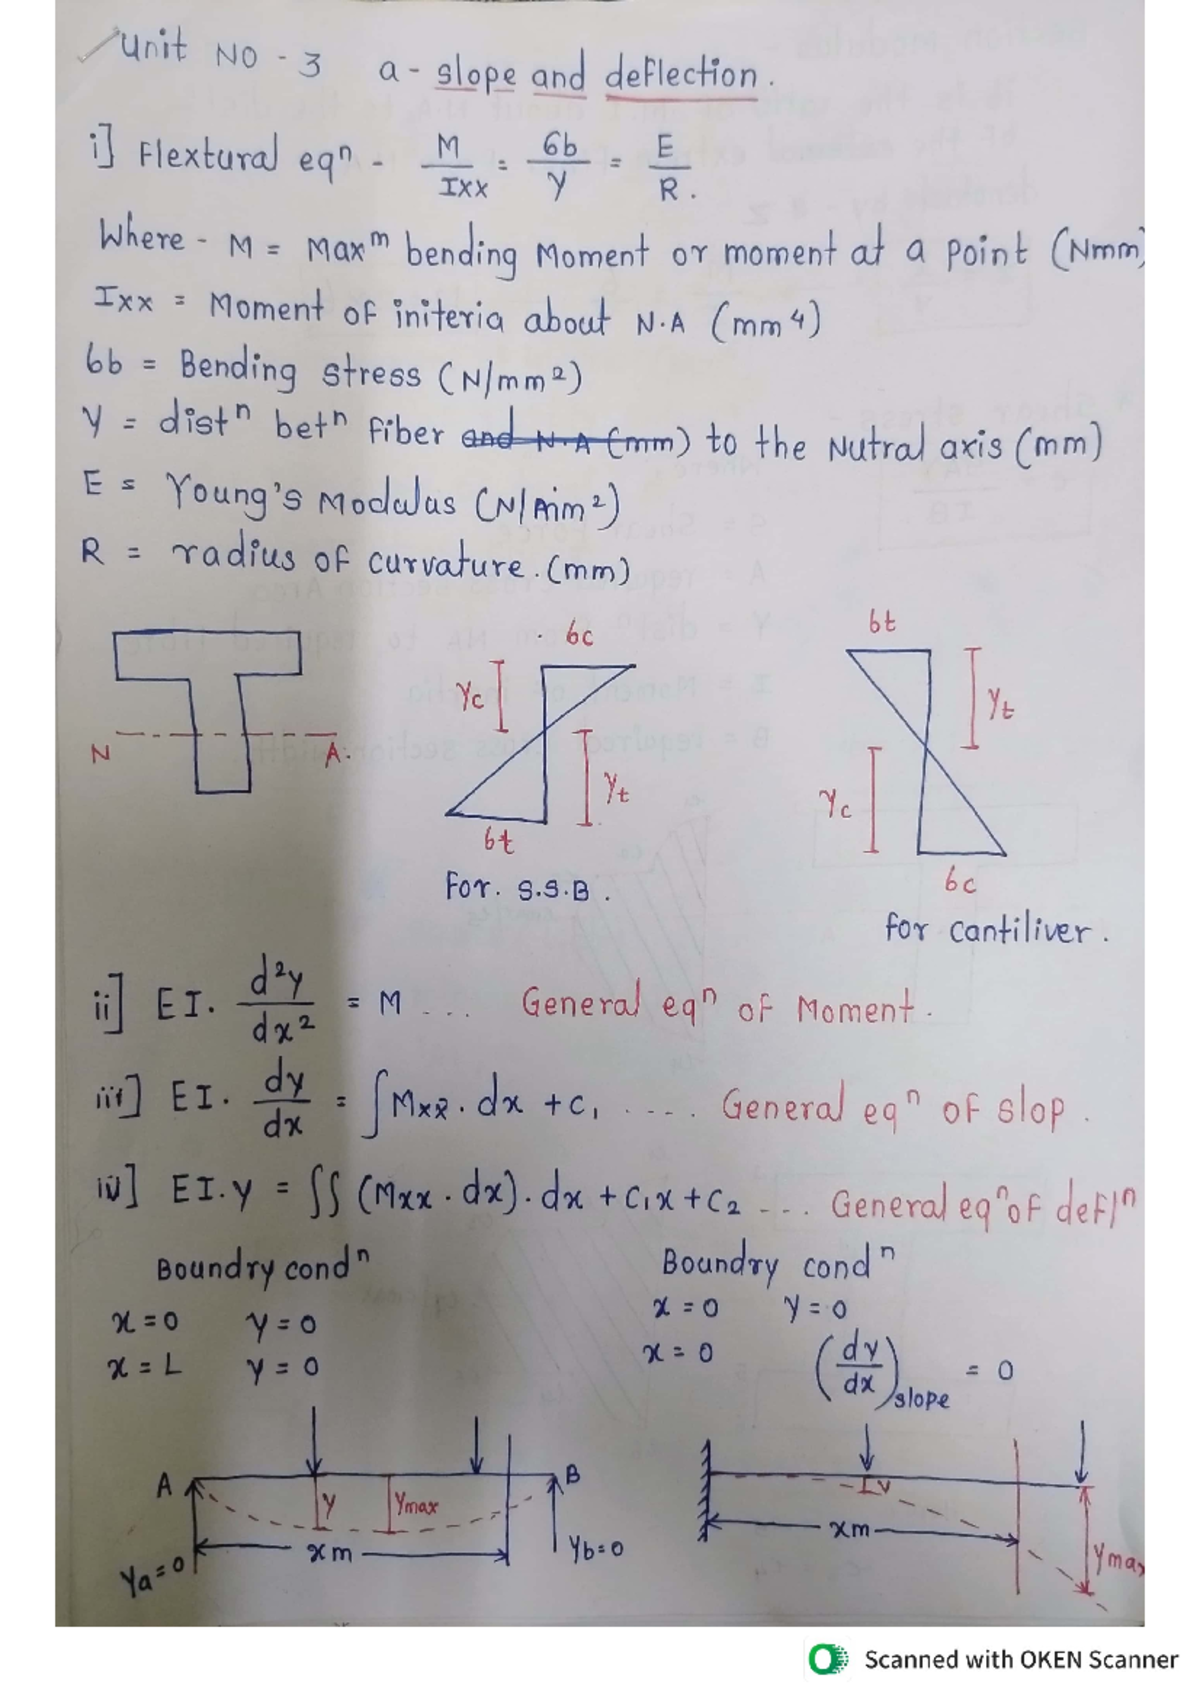 Unit NO - 3 a - slope and deflection.
i] Flextural eqⁿ - M/Ixx = 6b/Y = E/R.
Where - M = Maxᵐ bending Moment or moment at a point (Nmm)
Ixx = Moment of initeria about N.A (mm⁴)
6b = Bending stress (N/mm²)
Y = distⁿ betⁿ fiber and N.A (mm) to the Nutral axis (mm)
E = Young's Modulus (N/mm²)
R = radius of curvature. (mm)
6c
6t
Yc
Yt
N A.
Yt
Yc
6t
6c
For. S.S.B.
for cantiliver.
ii] EI. d²y/dx² = M ... General eqⁿ of Moment.
iii] EI. dy/dx = ∫Mxx. dx + C₁ .... General eqⁿ of slop.
iv] EI.y = ∫∫ (Mxx . dx). dx + C₁x + C₂ ... General eqⁿ of deflⁿ
Boundry condⁿ
x = 0 y = 0
x = L y = 0
Boundry condⁿ
x = 0 y = 0
x = 0 (dy/dx)slope = 0
A B
y Ymax
xm
Ya = 0
Yb = 0
y
xm
Ymax
Scanned with OKEN Scanner